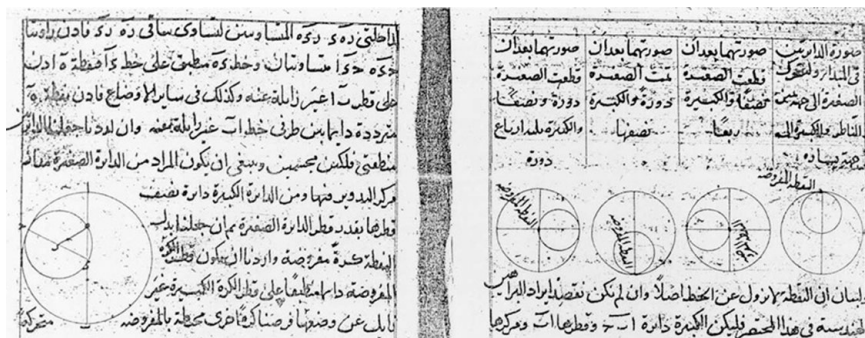 صورة الدايرتين
في المبدأ ولتتحرك
الصغيرة الى جهة يمين
الناظر والكبيرة الى
جهة يساره
صورتهما بعد ان
قطعت الصغيرة
نصفا والكبيرة
ربعا
صورتهما بعد ان
تمت الصغيرة
دورة والكبيرة
نصفها
صورتهما بعد ان
قطعت الصغيرة
دورة ونصفا
والكبيرة ثلثة ارباع
دورة
النقطة المفروضة
النقطة المفروضة
النقطة المفروضة
لبيان ان النقطة لا تزول عن الخط اصلا وان لم نكن نقصد ايراد البراهين
الهندسية في هذا المختصر فليكن الكبيرة دايرة ا ب ح وقطرها ا ب ومركزها
المتساويتين لتساوى ساقى فاذن زاويتا
متساويتان وخط منطبق على خط فنقطة ه اذن
على قطر ا ب غير زايلة عنه وكذلك في ساير الاوضاع فاذن نقطة ه
مترددة دايما بين طرفى خط ا ب غير زايلة عنه وان اردنا جعلنا الدايرتين
منطقتى فلكين مجسمين وينبغى ان يكون المراد من الدايرة الصغيرة مدار
مركز التدوير فيها ومن الدايرة الكبيرة دايرة نصف
قطرها بقدر قطر الدايرة الصغيرة ثم ان جعلنا بدل
النقطة كرة مفروضة واردنا ان يكون قطر الكرة
المفروضة دايما منطبقا على قطر الكرة الكبيرة غير
زايل عن وضعها فرضنا كرة اخرى محيطة بالمفروضة متحركة